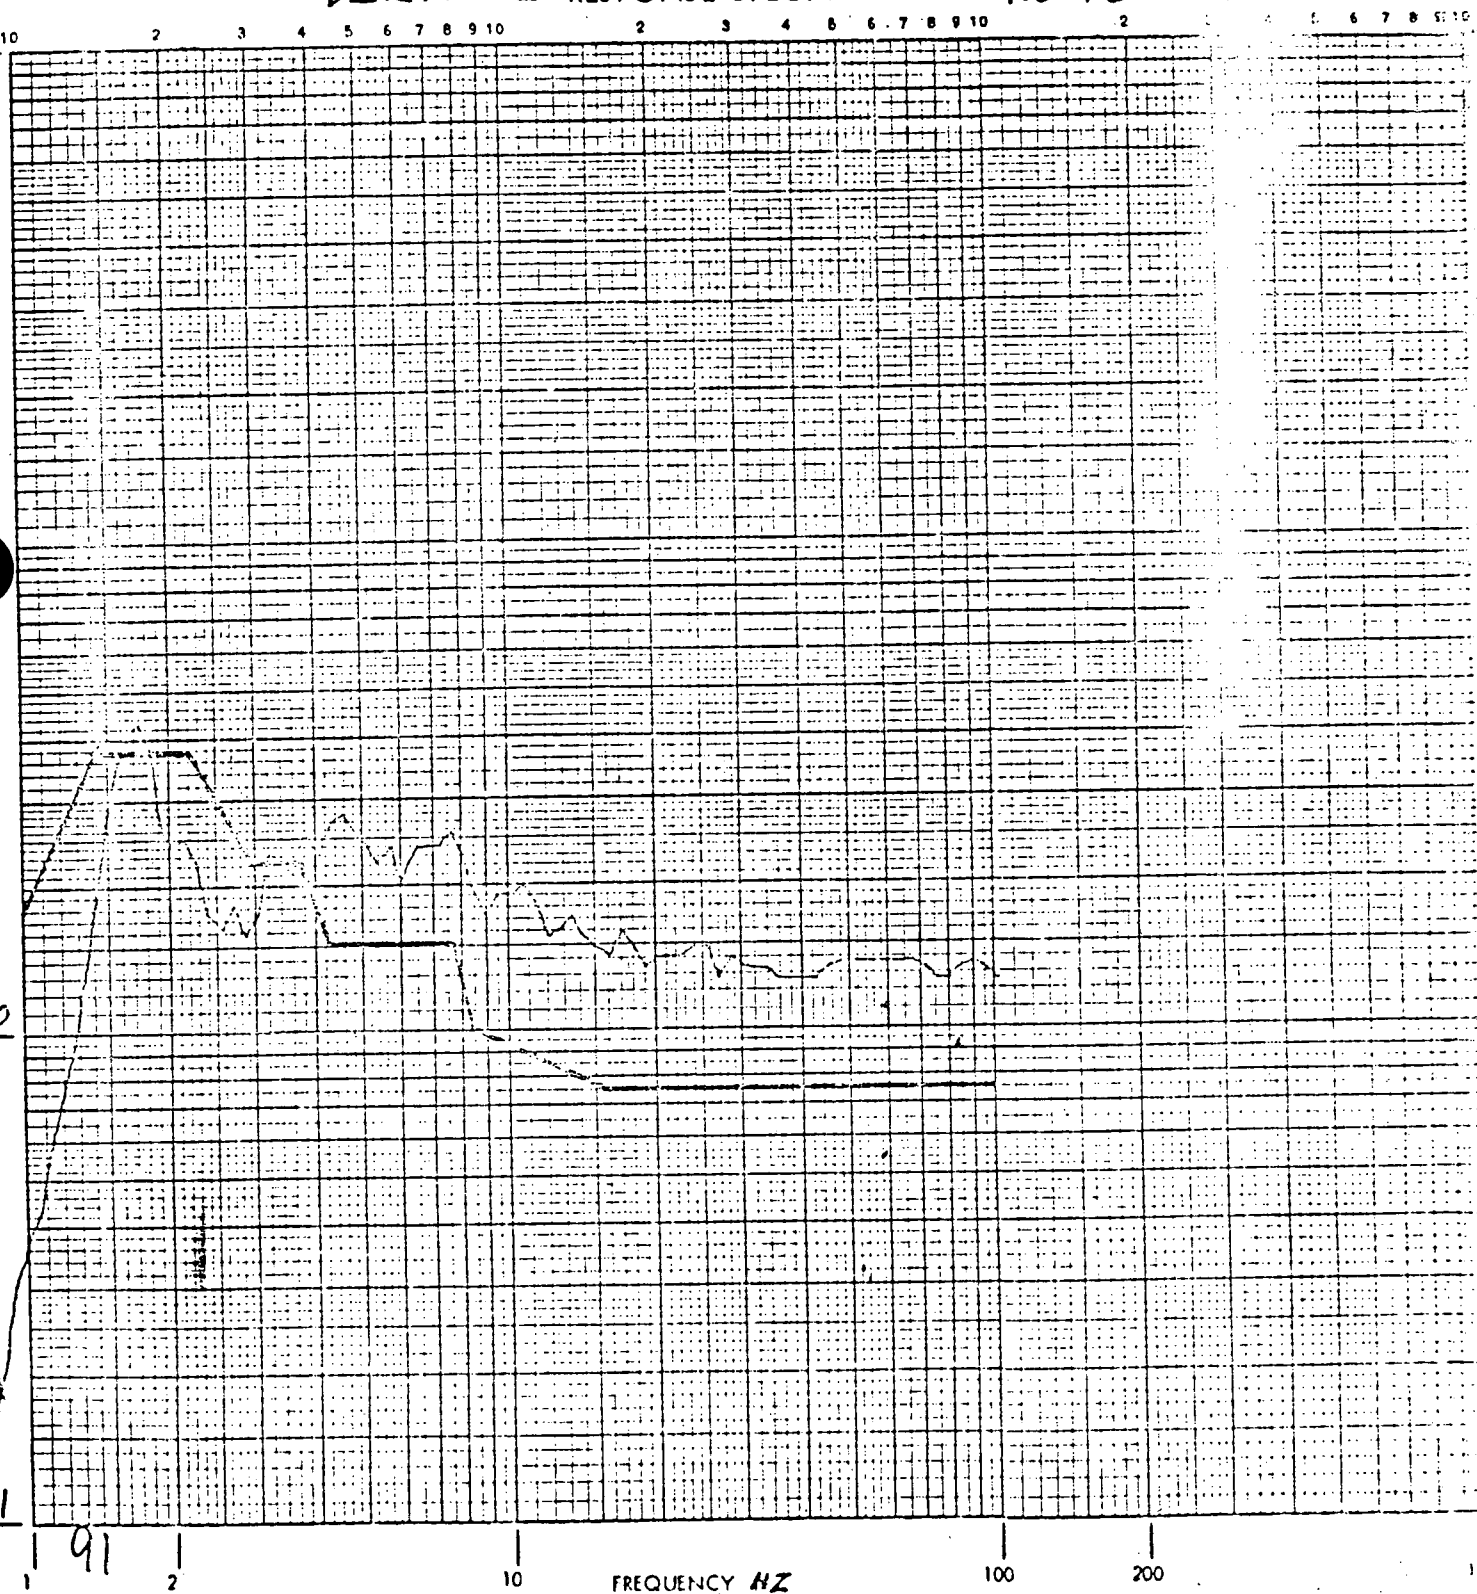 RESPONSE
10 2 3 4 5 6 7 8 9 10 2 3 4 5 6 7 8 9 10 2 3 4 5 6 7 8 9 10
1
91
1 2 10 FREQUENCY HZ 100 200